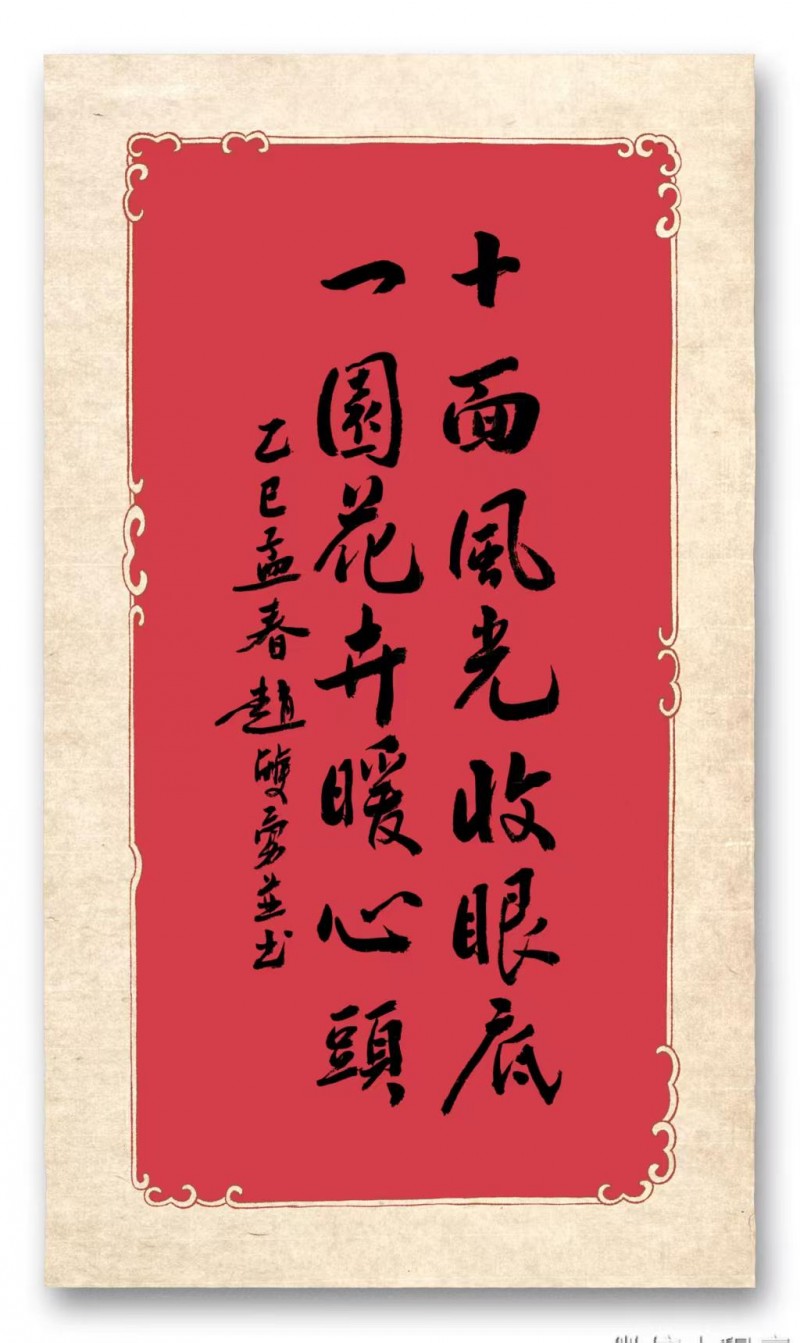 十面風光收眼底
一園花卉暖心頭
乙巳孟春趙雙勇並书